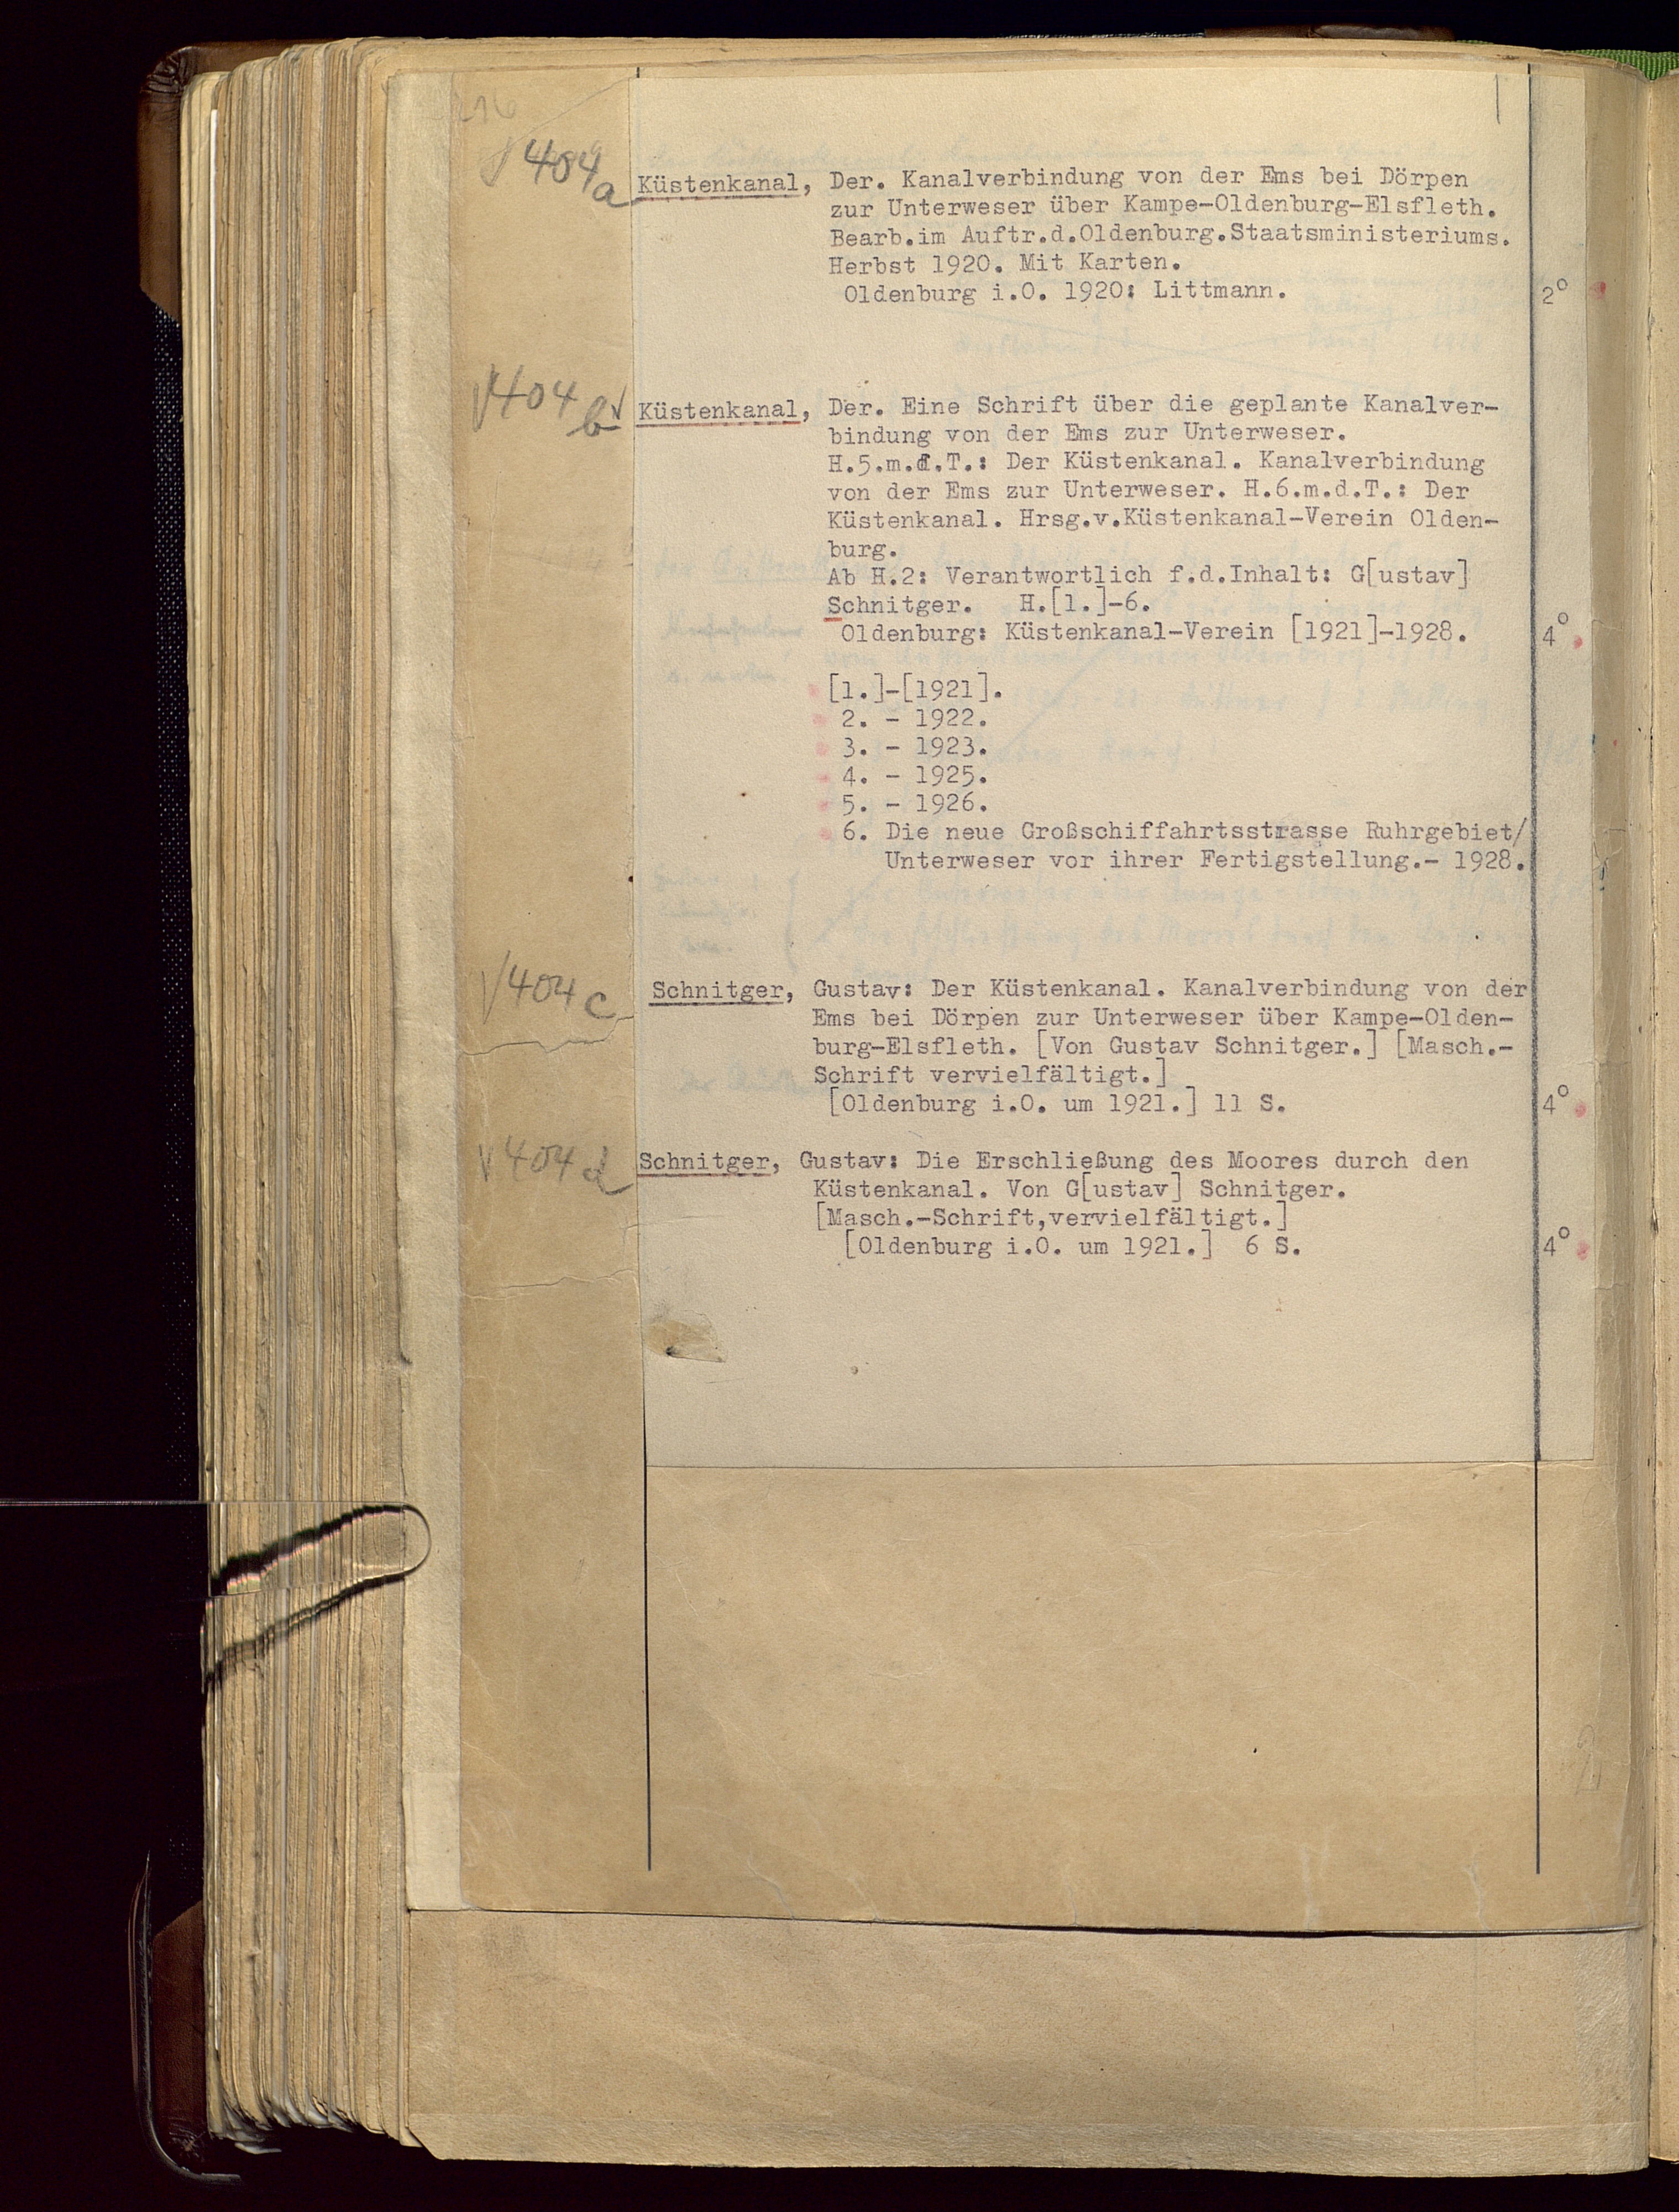 404a Küstenkanal, Der. Kanalverbindung von der Ems bei Dörpen
zur Unterweser über Kampe-Oldenburg-Elsfleth.
Bearb.im Auftr.d.Oldenburg.Staatsministeriums.
Herbst 1920. Mit Karten.
Oldenburg i.O. 1920: Littmann. 2°
404b Küstenkanal, Der. Eine Schrift über die geplante Kanalver-
bindung von der Ems zur Unterweser.
H.5.m.d.T.: Der Küstenkanal. Kanalverbindung
von der Ems zur Unterweser. H.6.m.d.T.: Der
Küstenkanal. Hrsg.v.Küstenkanal-Verein Olden-
burg.
Ab H.2: Verantwortlich f.d.Inhalt: G[ustav]
Schnitger. H.[1.]-6.
Oldenburg: Küstenkanal-Verein [1921]-1928. 4°
[1.]-[1921].
2. - 1922.
3. - 1923.
4. - 1925.
5. - 1926.
6. Die neue Großschiffahrtsstrasse Ruhrgebiet/
Unterweser vor ihrer Fertigstellung.- 1928.
404c Schnitger, Gustav: Der Küstenkanal. Kanalverbindung von der
Ems bei Dörpen zur Unterweser über Kampe-Olden-
burg-Elsfleth. [Von Gustav Schnitger.] [Masch.-
Schrift vervielfältigt.]
[Oldenburg i.O. um 1921.] 11 S. 4°
404d Schnitger, Gustav: Die Erschließung des Moores durch den
Küstenkanal. Von G[ustav] Schnitger.
[Masch.-Schrift,vervielfältigt.]
[Oldenburg i.O. um 1921.] 6 S. 4°